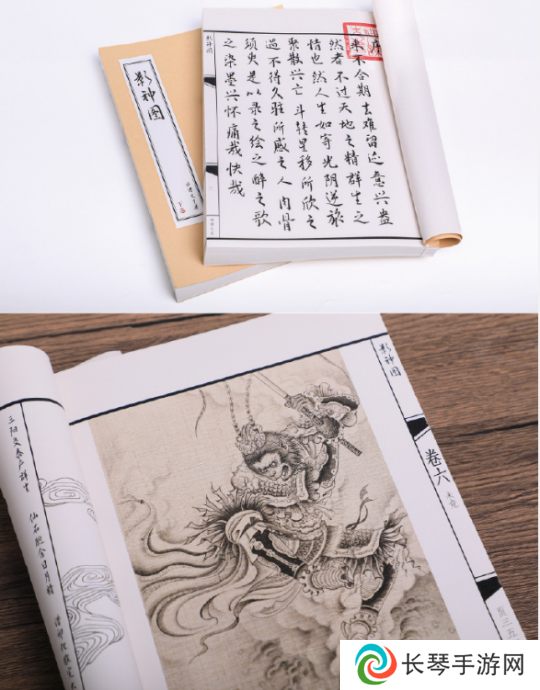 影神图
序
来不合期去难留迹意兴盎
然者不过天地之精群生之
情也然人生如寄光阴逆旅
聚散兴亡斗转星移所欣之
遇不得久驻所感之人肉骨
须臾是以录之绘之醉之歌
之染墨兴怀痛哉快哉
影神图
卷六
三阳交泰产群生
仙石胞含日月精
借卵化猴完
长琴手游网